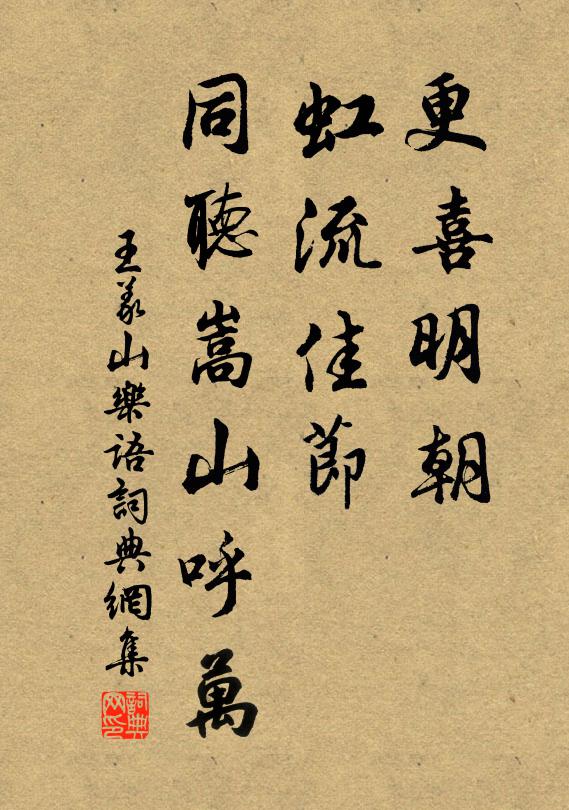 更喜明朝
虹流佳節
同聽嵩山呼萬
王義山樂語詞典網集
詞典網印